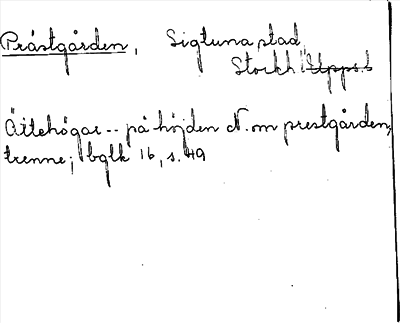 Prästgården, Sigtuna stad,
Stockh. Upps. l
Ättehögar -- på höjden N. om prestgården,
trenne; bglk 16, s. 49